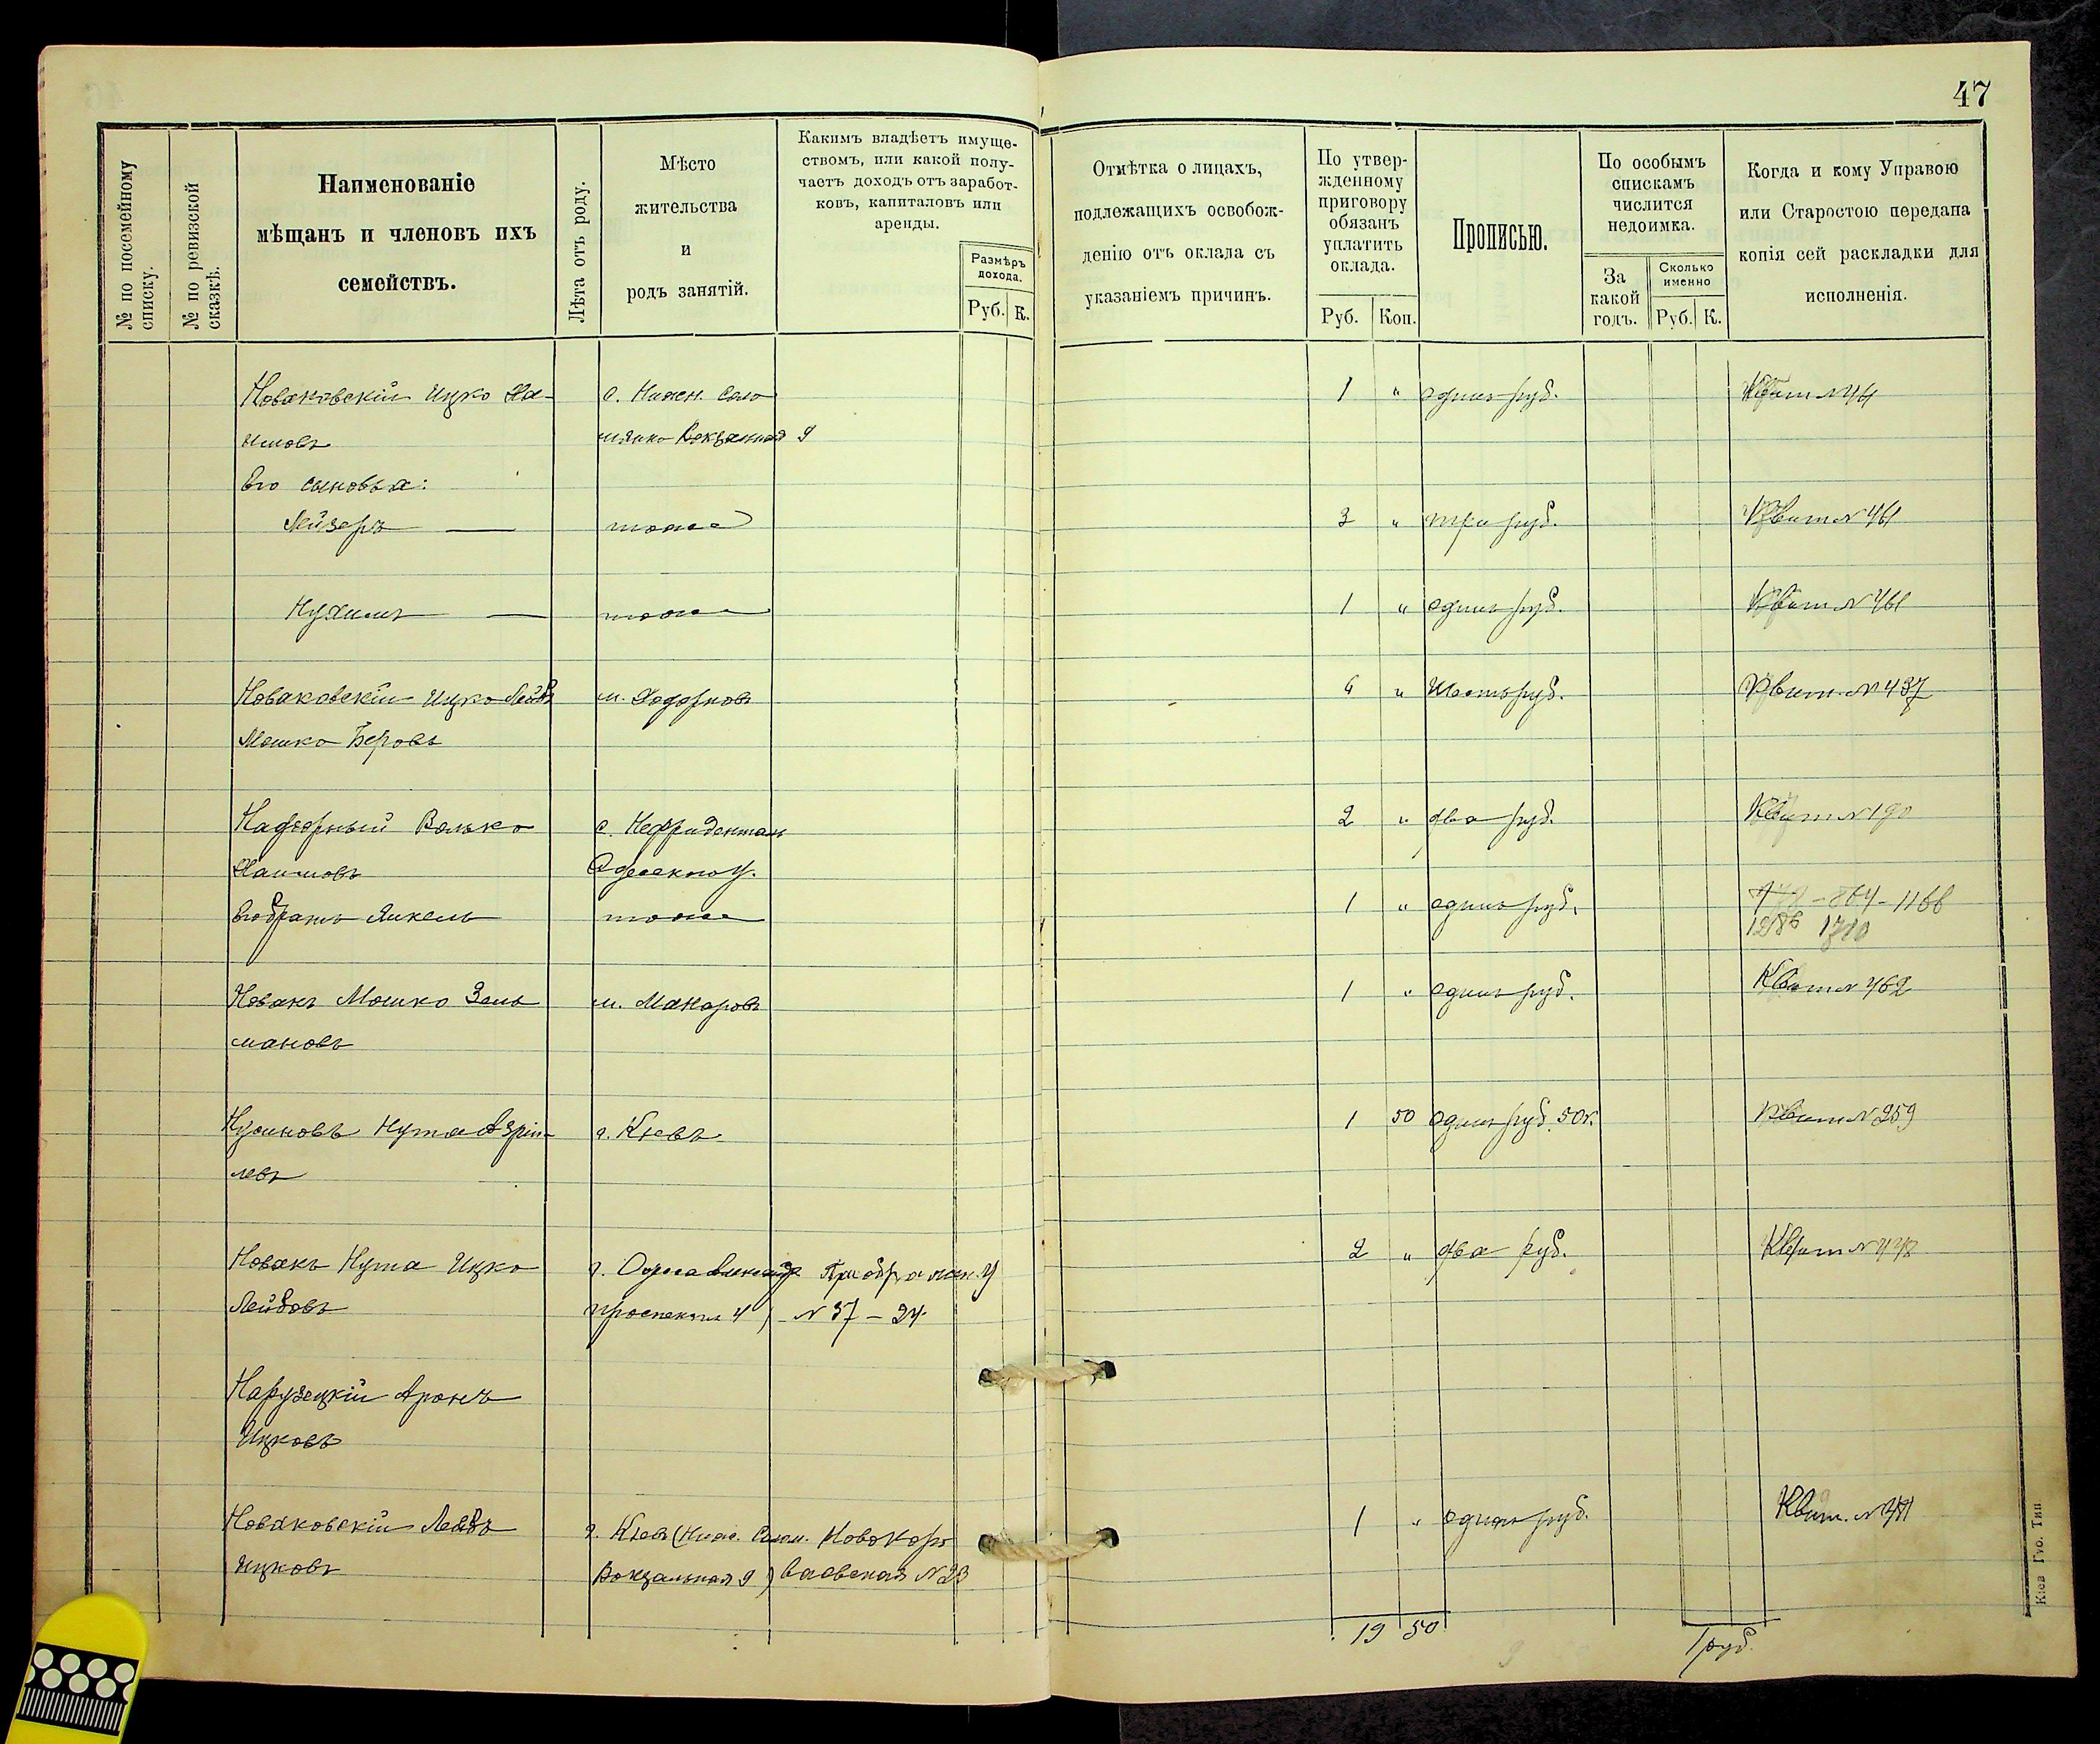 47
№ по посемейному списку.
№ по ревизской сказкѣ.
Наименованіе
мѣщанъ и членовъ ихъ
семействъ.
Лѣта отъ роду.
Мѣсто
жительства
и
родъ занятій.
Какимъ владѣетъ имуще-
ствомъ, или какой полу-
чаетъ доходъ отъ заработ-
ковъ, капиталовъ или
аренды.
Размѣръ
дохода.
Руб. К.
Отмѣтка о лицахъ,
подлежащихъ освобож-
денію отъ оклада съ
указаніемъ причинъ.
По утвер-
жденному
приговору
обязанъ
уплатить
оклада.
Руб. Коп.
Прописью.
По особымъ
спискамъ
числится
недоимка.
За
какой
годъ.
Сколько
именно
Руб. К.
Когда и кому Управою
или Старостою передана
копія сей раскладки для
исполненія.
Новаковскій Ицко Ха- с. Нижн. Соло 1 " одинъ руб. Квит №
имовъ мянка Вокзальная 9
Его сыновья:
Лейзеръ — тоже 3 " три руб. Квит № 461
Нухимъ — тоже 1 " одинъ руб. Квит № 461
Новаковскій Ицко Лейбъ м. Ходорковъ 6 " Шесть руб. Квит. № 437
Мошко Беровъ
Надворный Волько с. Нефриденталь 2 " два руб. Квит № 190
Хаимовъ Одесскаго у.
Его братъ Янкель тоже 1 " одинъ руб. - 864 - 1166
1286 1310
Новакъ Мошко Зель м. Макаровъ 1 " одинъ руб. Квит № 462
мановъ
Нусиновъ Нута Азріи- г. Кіевъ 1 50 один руб. 50 к. Квит № 259
левъ
Новакъ Нута Ицко г. Одесса Преображен. у 2 " два руб. Квит №
Лейбовъ проспектъ 4) № 37 - 24
Нарузецкій Аронъ
Ицковъ
Новаковскій Лейбъ г. Кіевъ (Ниж. Солом. Новокара 1 " одинъ руб. Квит. №
Ицковъ Вокзальная 9) ваевская № 23
19 50 1 руб.
Кіев Губ. Тип